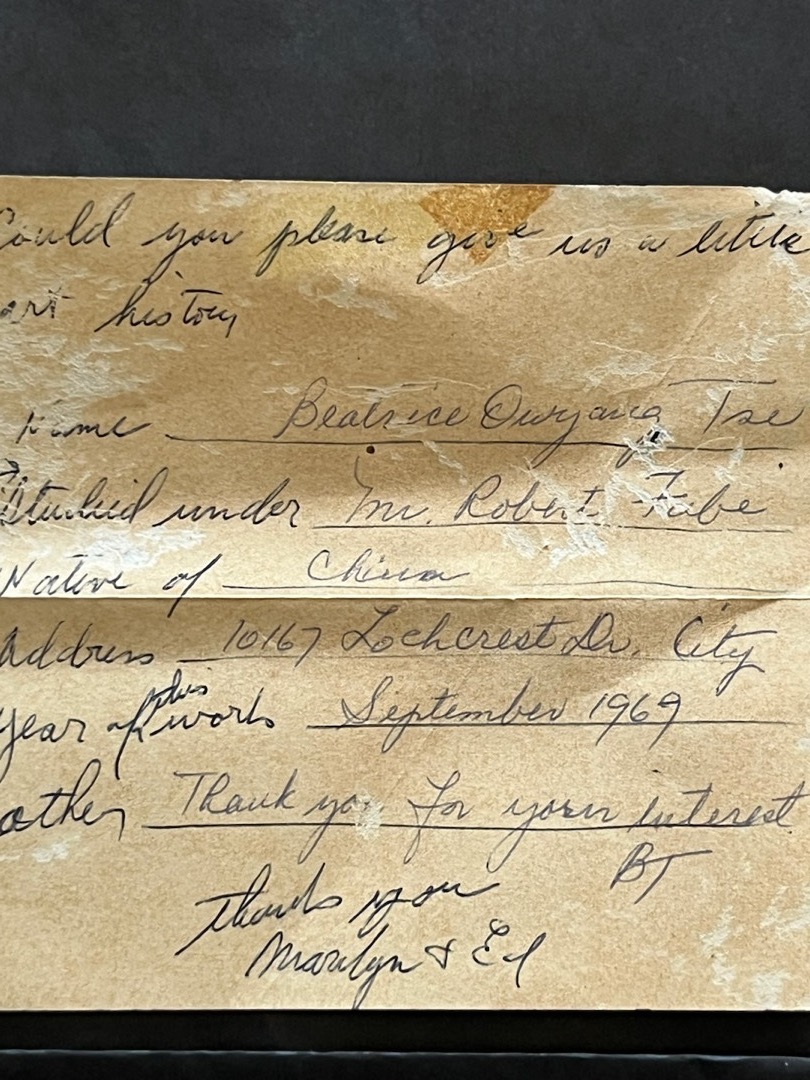 Could you please give us a little
art history
Name Beatrice Ouyang Tse
Studied under Mr. Robert Fabe
Native of China
Address 10167 Lochcrest Dr. City
Year of this work September 1969
other Thank you for your interest
BT
thank you
Marilyn & Ed